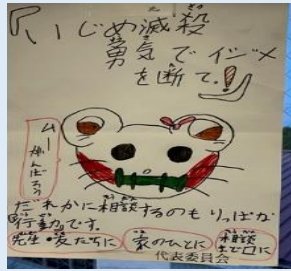 『いじめ滅殺
勇気でイジメ
を断て！』
ムー
がんばろう
だれかに相談するのもりっぱな
行動です。
先生・友たちに 家のひとに 相談
まど口に
代表委員会